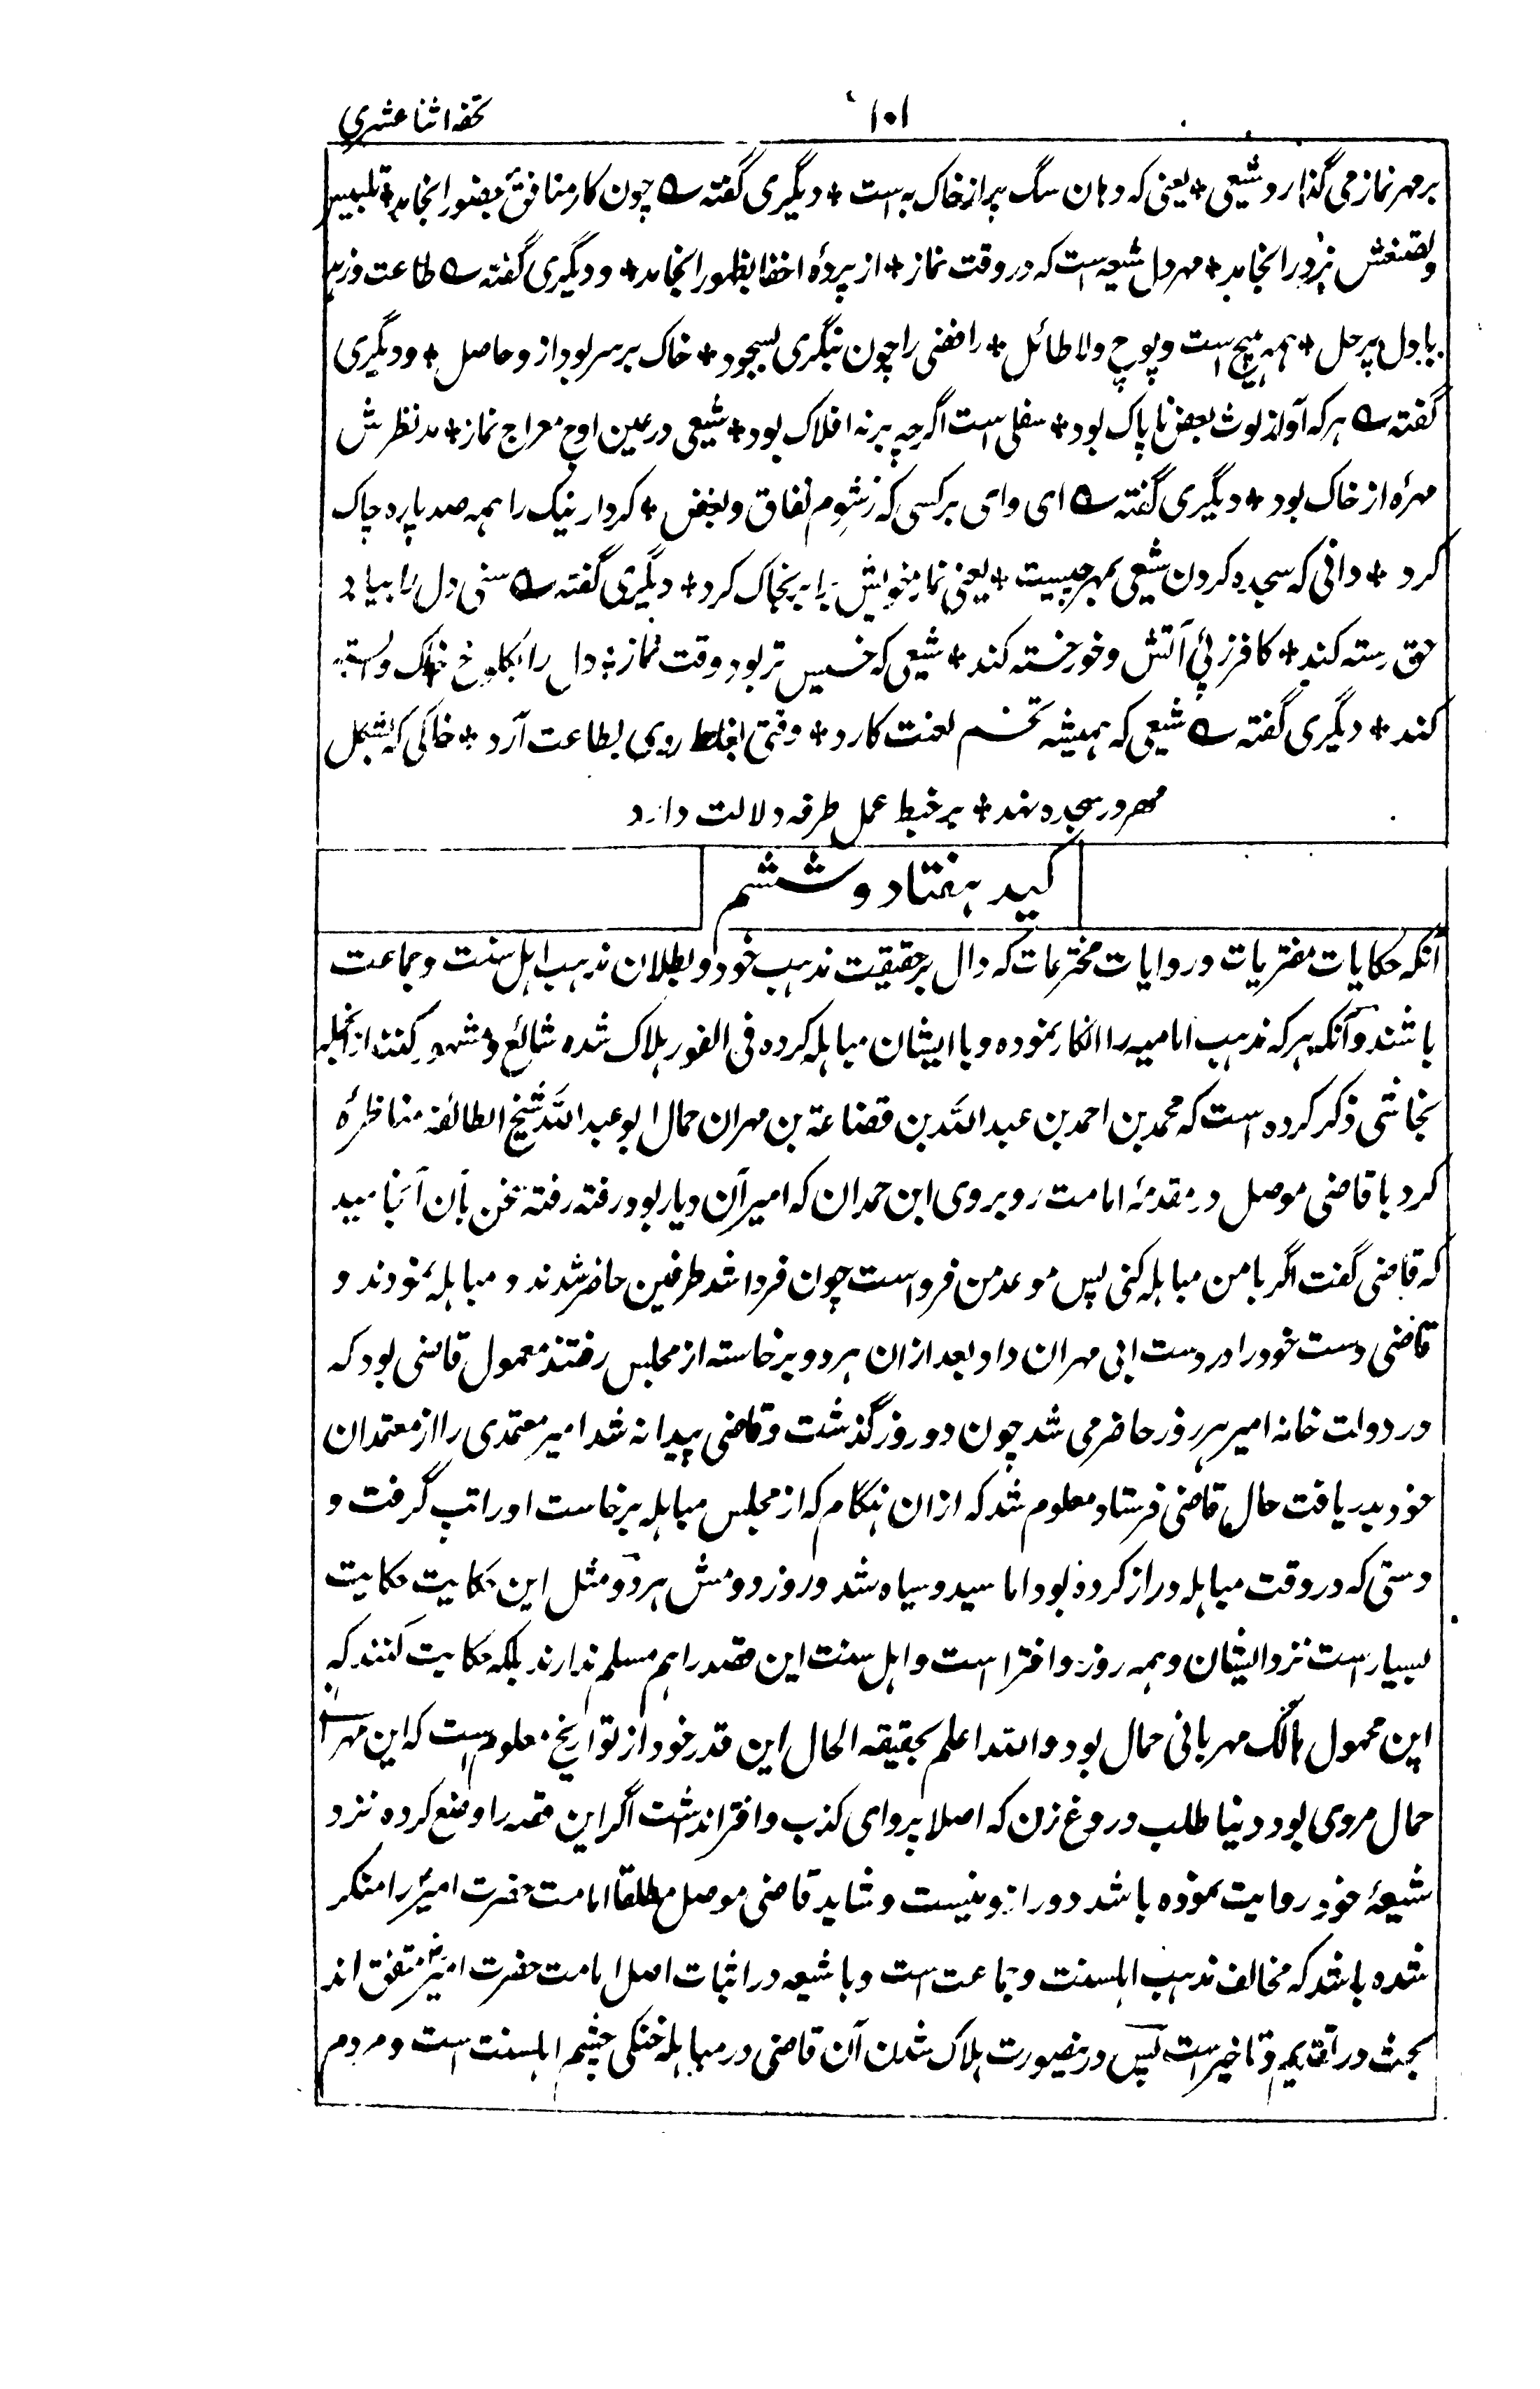 ۱۰۱ تحفه اثنا عشری
بر مهر نماز می گذارد شیعی * یعنی که دهان سگ پر از خاک به است * دیگری گفته ؎ چون کار منافق بفتور انجامد * تلبیس
و تصنعش بزور انجامد * مهر دل شیعه است که در وقت نماز * از پردهٔ اخفا بظهور انجامد * و دیگری گفته ؎ طاعت ورزی
با دل پر حل * همه هیچ است و پوچ و لا طائل * رافضی را چون بنگری بسجود * خاک بر سر بود از و حاصل * و دیگری
گفته ؎ هر که آواز لوث بغض ناپاک بود * سفلی است اگرچه بر نه افلاک بود * شیعی در عین اوج معراج نماز * مد نظرش
مهرهٔ از خاک بود * دیگری گفته ؎ ای وای بر کسی که ز شوم نفاق و بغض * کردار نیک را همه صد پاره چاک
کرد * دانی که سجده کردن شیعی بمهر چیست * یعنی نماز خویش برابر بخاک کرد * دیگری گفته ؎ سنی دل را بیاد
حق رسته کند * کافر زپی آتش و خور خسته کند * شیعی که خسیس تر بود وقت نماز * دل را بکلوخ خاک وابسته
کند * دیگری گفته ؎ شیعی که همیشه تخم لعنت کارد * وقتی بغلط روی بطاعت آرد * خاکی که بشکل
مهر در سجده نهد * بر خبط عمل طرفه دلالت دارد
کید هفتاد و ششم
آنکه حکایات مفتریات و روایات مخترعات که دال بر حقیقت مذهب خود و بطلان مذهب اهل سنت و جماعت
باشند و آنکه هر که مذهب امامیه را انکار نموده و با ایشان مباهله کرده فی الفور هلاک شده شائع و مشهور کنند ازانجمله
نجاشی ذکر کرده است که محمد بن احمد بن عبد الله بن قضاعة بن مهران جمال ابو عبد الله شیخ الطائفه مناظرهٔ
کرد با قاضی موصل در مقدمهٔ امامت روبروی ابن حمدان که امیر آن دیار بود رفته رفته سخن بآن انجامید
که قاضی گفت اگر با من مباهله کنی پس موعد من فرداست چون فردا شد طرفین حاضر شدند و مباهله نمودند و
قاضی دست خود را در دست ابی مهران داد بعد ازان هر دو برخاسته از مجلس رفتند معمول قاضی بود که
در دولت خانه امیر هر روز حاضر می شد چون دو روز گذشت و قاضی پیدا نه شد امیر معتمدی را از معتمدان
خود بدریافت حال قاضی فرستاد معلوم شد که ازان هنگام که از مجلس مباهله برخاست او را تب گرفت و
دستی که در وقت مباهله دراز کرده بود اماسید و سیاه شد و روز دومش بمرد و مثل این حکایت حکایت
بسیار است نزد ایشان و همه زور و افترا است و اهل سنت این قصه را هم مسلم ندارند بلکه حکایت کنند که
این مجهول هالک مهربانی جمال بود والله اعلم بحقیقه الحال این قدر خود از تواریخ معلوم است که این مهران
جمال مروی بود دنیا طلب دروغ زن که اصلا پروای کذب و افترا نداشت اگر این قصه را وضع کرده نزد
شیعهٔ خود روایت نموده باشد دور ازو نیست و شاید قاضی موصل مطلقا امامت حضرت امیر را منکر
شده باشد که مخالف مذهب اهلسنت و جماعت است و با شیعه در اثبات اصل امامت حضرت امیر متفق اند
بحث در تقدیم و تاخیر است پس درینصورت هلاک شدن آن قاضی در مباهله خنکی چشم اهلسنت است و مردم